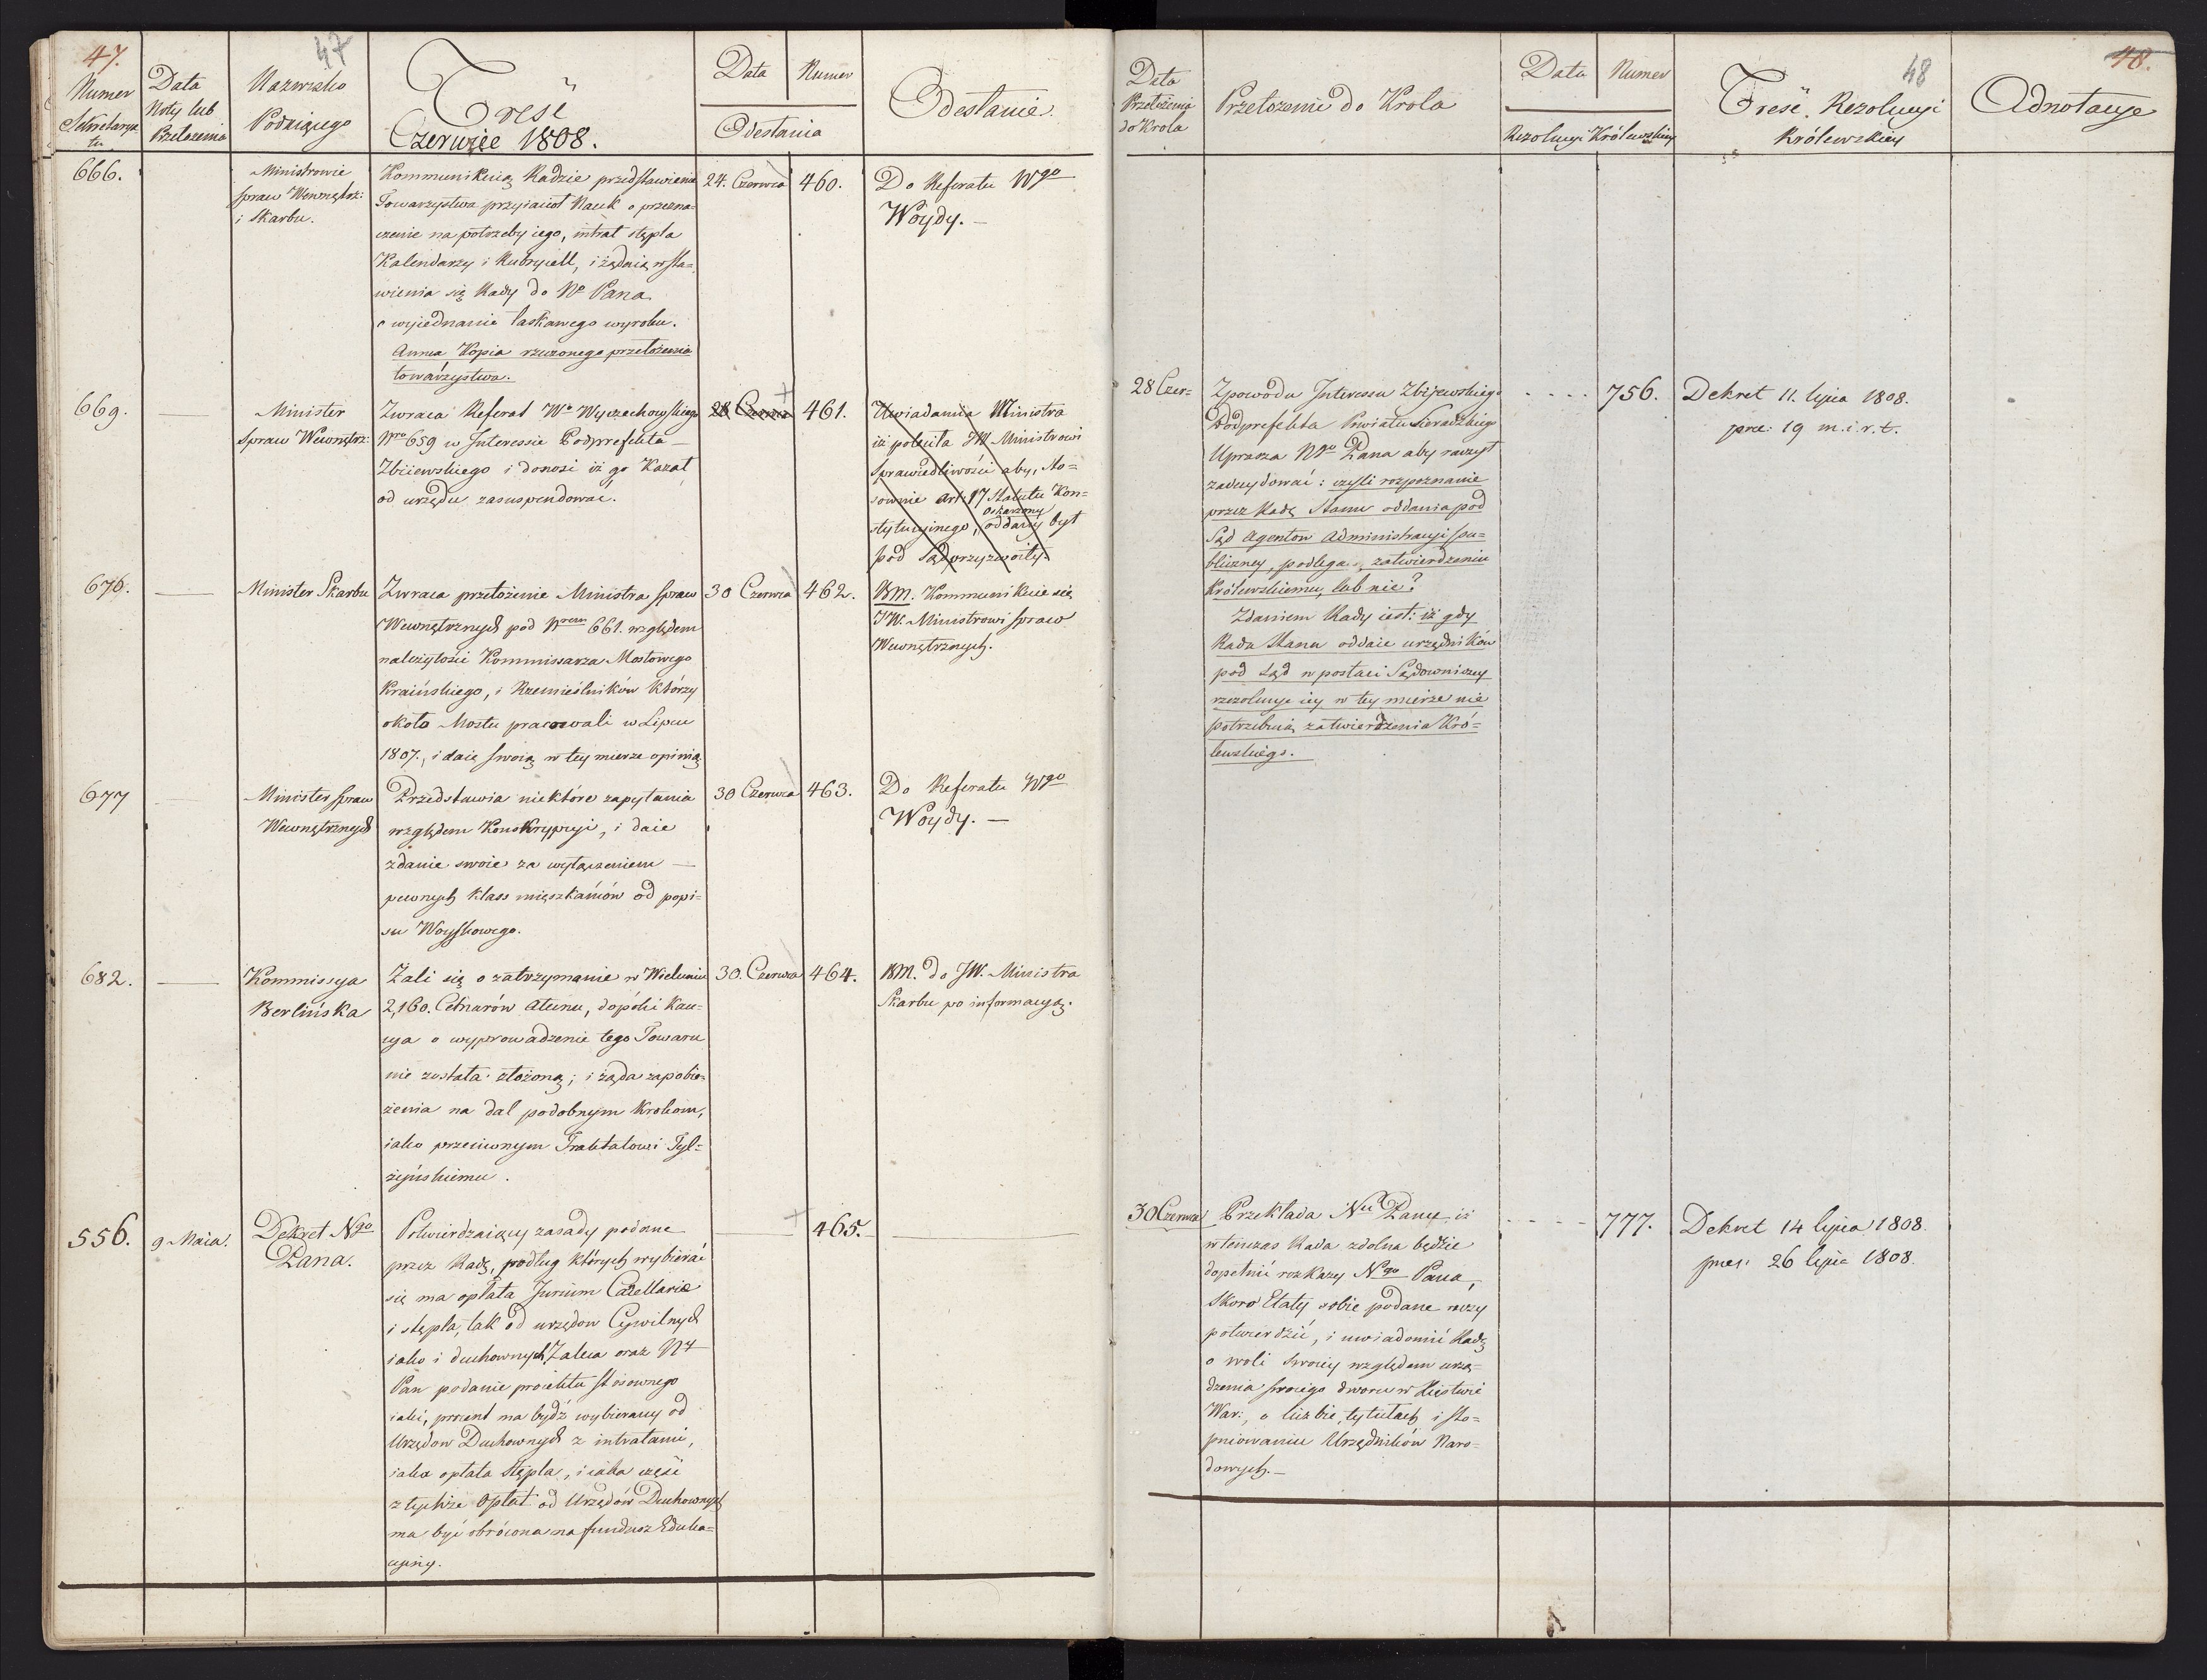 47.
47
Numer
Sekretarya
tu
Data
Noty lub
Przełożenia
Nazwisko
Podaiącego
Treść
Czerwiec 1808.
Data
Numer
Odesłania
Odesłanie.
666.
Ministrowie
spraw Wewnętrz:
i Skarbu.
Kommunikuią Radzie przedstawienie
Towarzystwa przyiaciół Nauk o przezna=
czenie na potrzeby iego, intrat stępla
Kalendarzy i Rubrycell, i żądaią wsta=
wienia się Rady do No Pana
o wyiednanie łaskawego wyroku.
Annexa Kopia rzeczonego przełożenia
towarzystwa.
24. Czerwca
460.
Do Referatu Wgo
Woydy. —
669.
—
Minister
Spraw Wewnętrz:
Zwraca Referat Wo Wyczechowskiego
Nro 659 w Interessie Podprefekta —
Zbiiewskiego i donosi iż go Kazał
od urzędu zasuspendować.
28 Czerwca
461.
Uwiadamia Ministra
iż poleciła JW Ministrowi
Sprawiedliwości aby, sto=
sownie art: 17 Statutu Kon=
stytucyinego, oskarzony oddany był
pod Sąd przyzwoity.
676.
—
Minister Skarbu
Zwraca przełożenie Ministra spraw
Wewnętrznych pod Nrem 661. względem
należytości Kommissarza Mostowego
Kraińskiego, i Rzemieślników którzy
około Mostu pracowali w Lipcu
1807., i daie swoią w tey mierze opinią
30 Czerwca
462.
BM. Kommunikuie się
JW. Ministrowi spraw
Wewnętrznych.
677
Minister spraw
Wewnętrznych
Przedstawia niektóre zapytania
względem Konskrypcyi, i daie
zdanie swoie za wyłączeniem —
pewnych klass mieszkańców od popi=
su Woyskowego.
30 Czerwca
463.
Do Referatu Wgo
Woydy. —
682.
—
Kommissya
Berlińska
Żali się o zatrzymanie w Wieluniu
2,160. Cetnarów ałunu, dopóki Kau=
cya o wyprowadzenie tego Towaru
nie została złożoną; i żąda zapobie=
żenia na dal podobnym Krokom,
iako przeciwnym Traktatowi Tyl=
żyńskiemu.
30. Czerwca
464.
BM. do JW. Ministra
Skarbu po informacyą.
556.
9 Maia.
Dekret Ngo
Pana.
Potwierdzaiący zasady podane
przez Radę, podług których wybierać
się ma opłata Jurium Cacellariæ
i stępla, tak od urzędow Cywilnych
iako i duchownych. Zaleca oraz N+
Pan podanie proiektu stosownego
iaki, procent ma bydź wybierany od
Urzędow Duchownych z intratami,
iaka opłata Stępla, i iaka część
z tychże Opłat od Urzędów Duchownych
ma być obrócona na fundusz Eduka=
cyiny.
465.
48
48.
Data
Przełożenia
do Krola
Przełożenie do Krola
Data
Numer
Rezolucyi Królewskiey
Treść Rezolucyi
Królewskiey
Adnotacye
28 Czer=
Zpowodu Interessu Zbiiewskiego
Podprefekta Powiatu Sieradzkiego
Uprasza Ngo Pana aby raczył
zadecydować: czyli rozpoznanie
przez Radę Stanu oddania pod
Sąd Agentow Administracyi pu=
bliczney, podlega zatwierdzeniu
Królewskiemu, lub nie?
Zdaniem Rady iest: iż gdy
Rada Stanu oddaie urzędników
pod Sąd w postaci Sądowniczey
rezolucye iey w tey mierze nie
potrzebuią zatwierdzenia Kró=
lewskiego.
756.
Dekret 11. lipca 1808.
prez: 19 m. i. r. t.
30 Czerwca
Przekłada Nu Panu, iż
w tenczas Rada zdolna będzie
dopełnić rozkazy Ngo Pana,
skoro Etaty sobie podane raczy
potwierdzić, i uwiadomić Radę
o woli Swoiey względem urzą=
dzenia swoiego dworu w Xięstwie
War:, o liczbie, tytułach i sto=
pniowaniu Urzędników Naro=
dowych. —
777.
Dekret 14 lipca 1808.
prez: 26 lipca 1808.